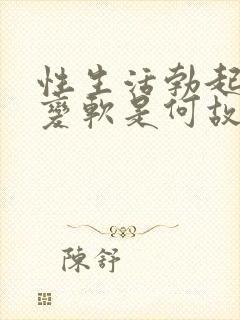 性生活勃起
變軟是何故
陳舒